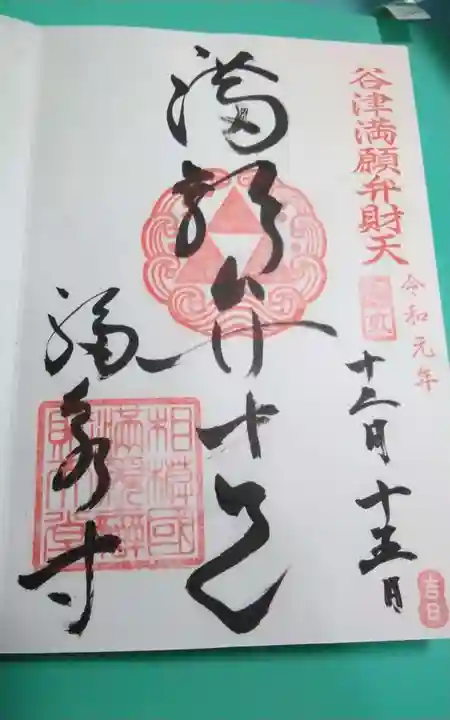 谷津満願弁財天
令和元年
十二月十五日
吉日
満願弁才天
福泉寺
相模國
満願辯
財天堂